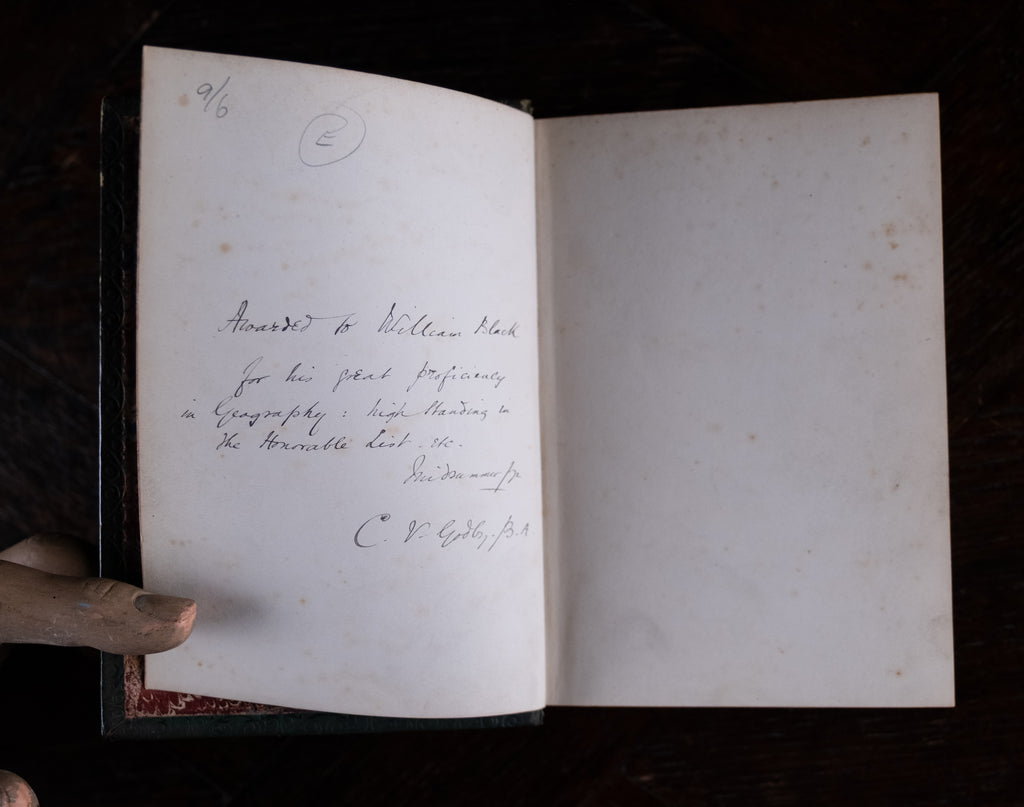 9/6
E
Awarded to William Black
for his great proficiency
in Geography: high standing in
the Honorable List. etc.
Midsummer
C. V. Godby. B.A.